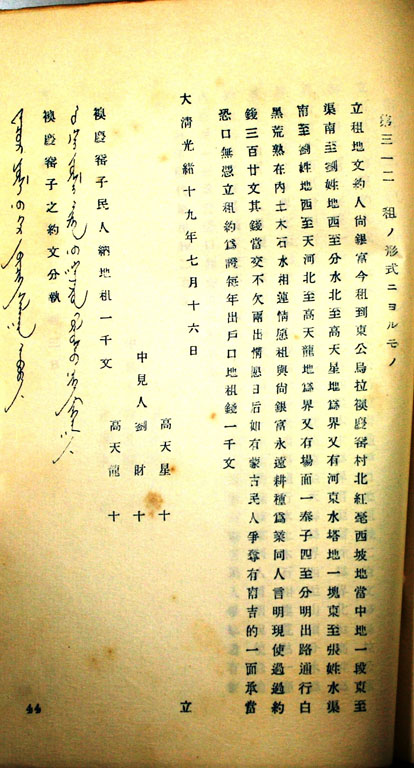 第三一二 租ノ形式ニヨルモノ
立租地文約人尚銀富今租到東公烏拉襖慶窰村北紅毫西坡地當中地一段東至
渠南至劉姓地西至分水北至高天星地爲界又有河東水塔地一塊東至張姓水渠
南至劉姓地西至天河北至高天龍地爲界又有場面一奉子四至分明出路通行白
黑荒熟在內土木石水相蓮情愿租與尚銀富永遠耕種爲業同人言明現使過過約
錢三百廿文其錢當交不欠兩出情愿日后如有蒙古民人爭奪有南吉的一面承當
恐口無憑立租約爲證每年出戶口地租錢一千文
大清光緒十九年七月十六日 立
高天星 十
中見人 劉財 十
高天龍 十
襖慶窰子民人納地租一千文
襖慶窰子之約文分執
44